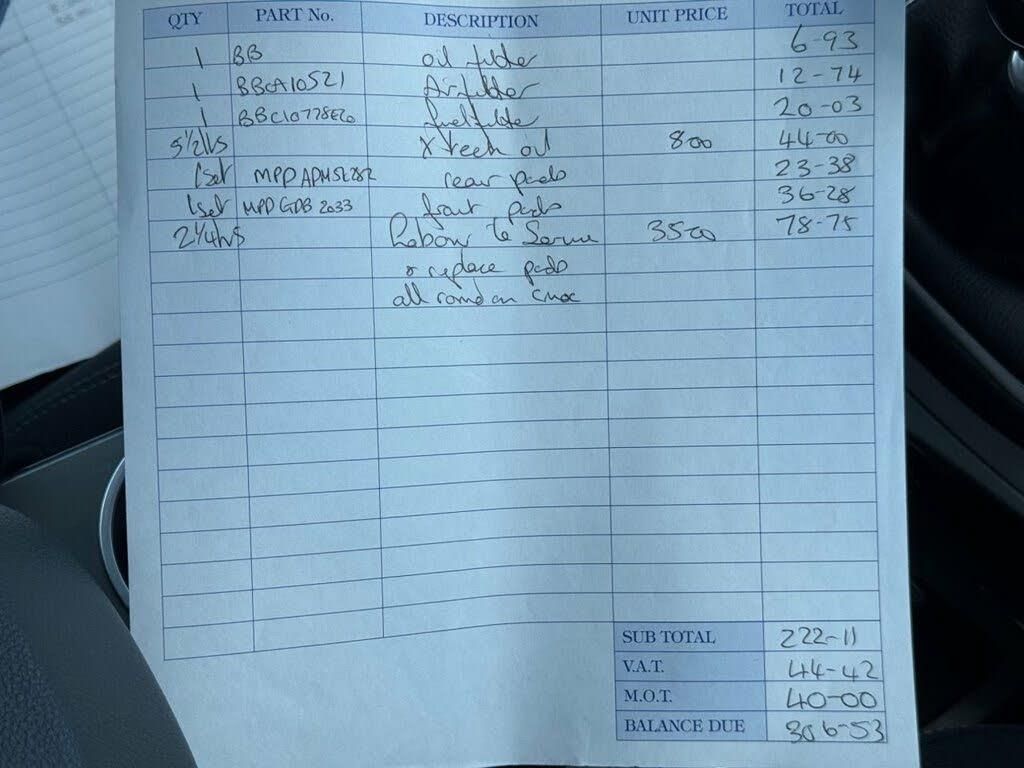 QTY PART No. DESCRIPTION UNIT PRICE TOTAL
1 BB oil filter 6-93
1 BBCA10521 Air filter 12-74
1 BBC10778E20 fuel filter 20-03
5 1/2 lts Xtech oil 8 00 44-00
1 set MPP ADMSE282 rear pads 23-38
1 set MPD GDB 2033 front pads 36-28
2 1/4 hrs Labour to Service 35 00 78-75
& replace pads
all round on
SUB TOTAL 222-11
V.A.T. 44-42
M.O.T. 40-00
BALANCE DUE 306-53